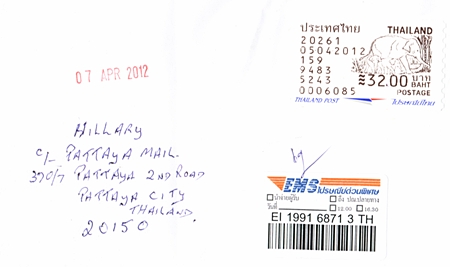 ประเทศไทย THAILAND
20261
05042012
159
9483
5243
0006085
32.00 บาท
BAHT
POSTAGE
THAILAND POST ไปรษณีย์ไทย
07 APR 2012
HILLARY
c/- PATTAYA MAIL
370/7 PATTAYA 2ND ROAD
PATTAYA CITY
THAILAND
20150
by
EMS ไปรษณีย์ด่วนพิเศษ
นำจ่ายผู้รับ ถึง ปณ.ปลายทาง
วันที่ 12.00 16.30
EI 1991 6871 3 TH